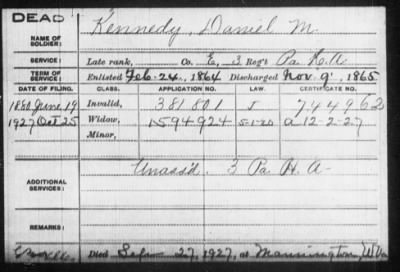 DEAD
NAME OF SOLDIER: Kennedy, Daniel M.
SERVICE: Late rank, Co. E, 3 Reg't Pa. H. A.
TERM OF SERVICE: Enlisted Feb. 24, 1864 Discharged Nov. 9, 1865
DATE OF FILING. CLASS. APPLICATION NO. LAW. CERTIFICATE NO.
1880 June 19 Invalid, 381801 J 744962
1927 Oct 25 Widow, 1594924 5-1-20 a 12-2-27
Minor,
ADDITIONAL SERVICES: Unass'd. 3 Pa H. A
REMARKS:
Died Sep 27, 1927, at Mannington, W Va